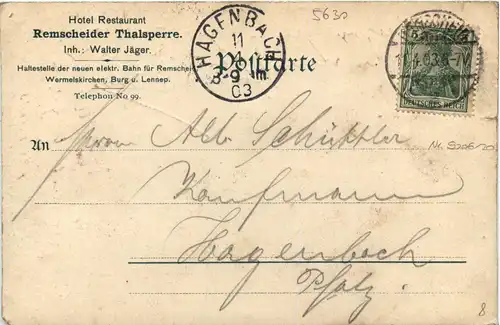 Hotel Restaurant
Remscheider Thalsperre.
Inh.: Walter Jäger.
Haltestelle der neuen elektr. Bahn für Remscheid
Wermelskirchen, Burg u. Lennep.
Telephon No 99.
Postkarte
HAGENBACH
11
8-9 Vm
03
5630
DEUTSCHES REICH
An Herrn Alb. Schüttler
Kaufmann
Hagenbach
Pfalz.
8